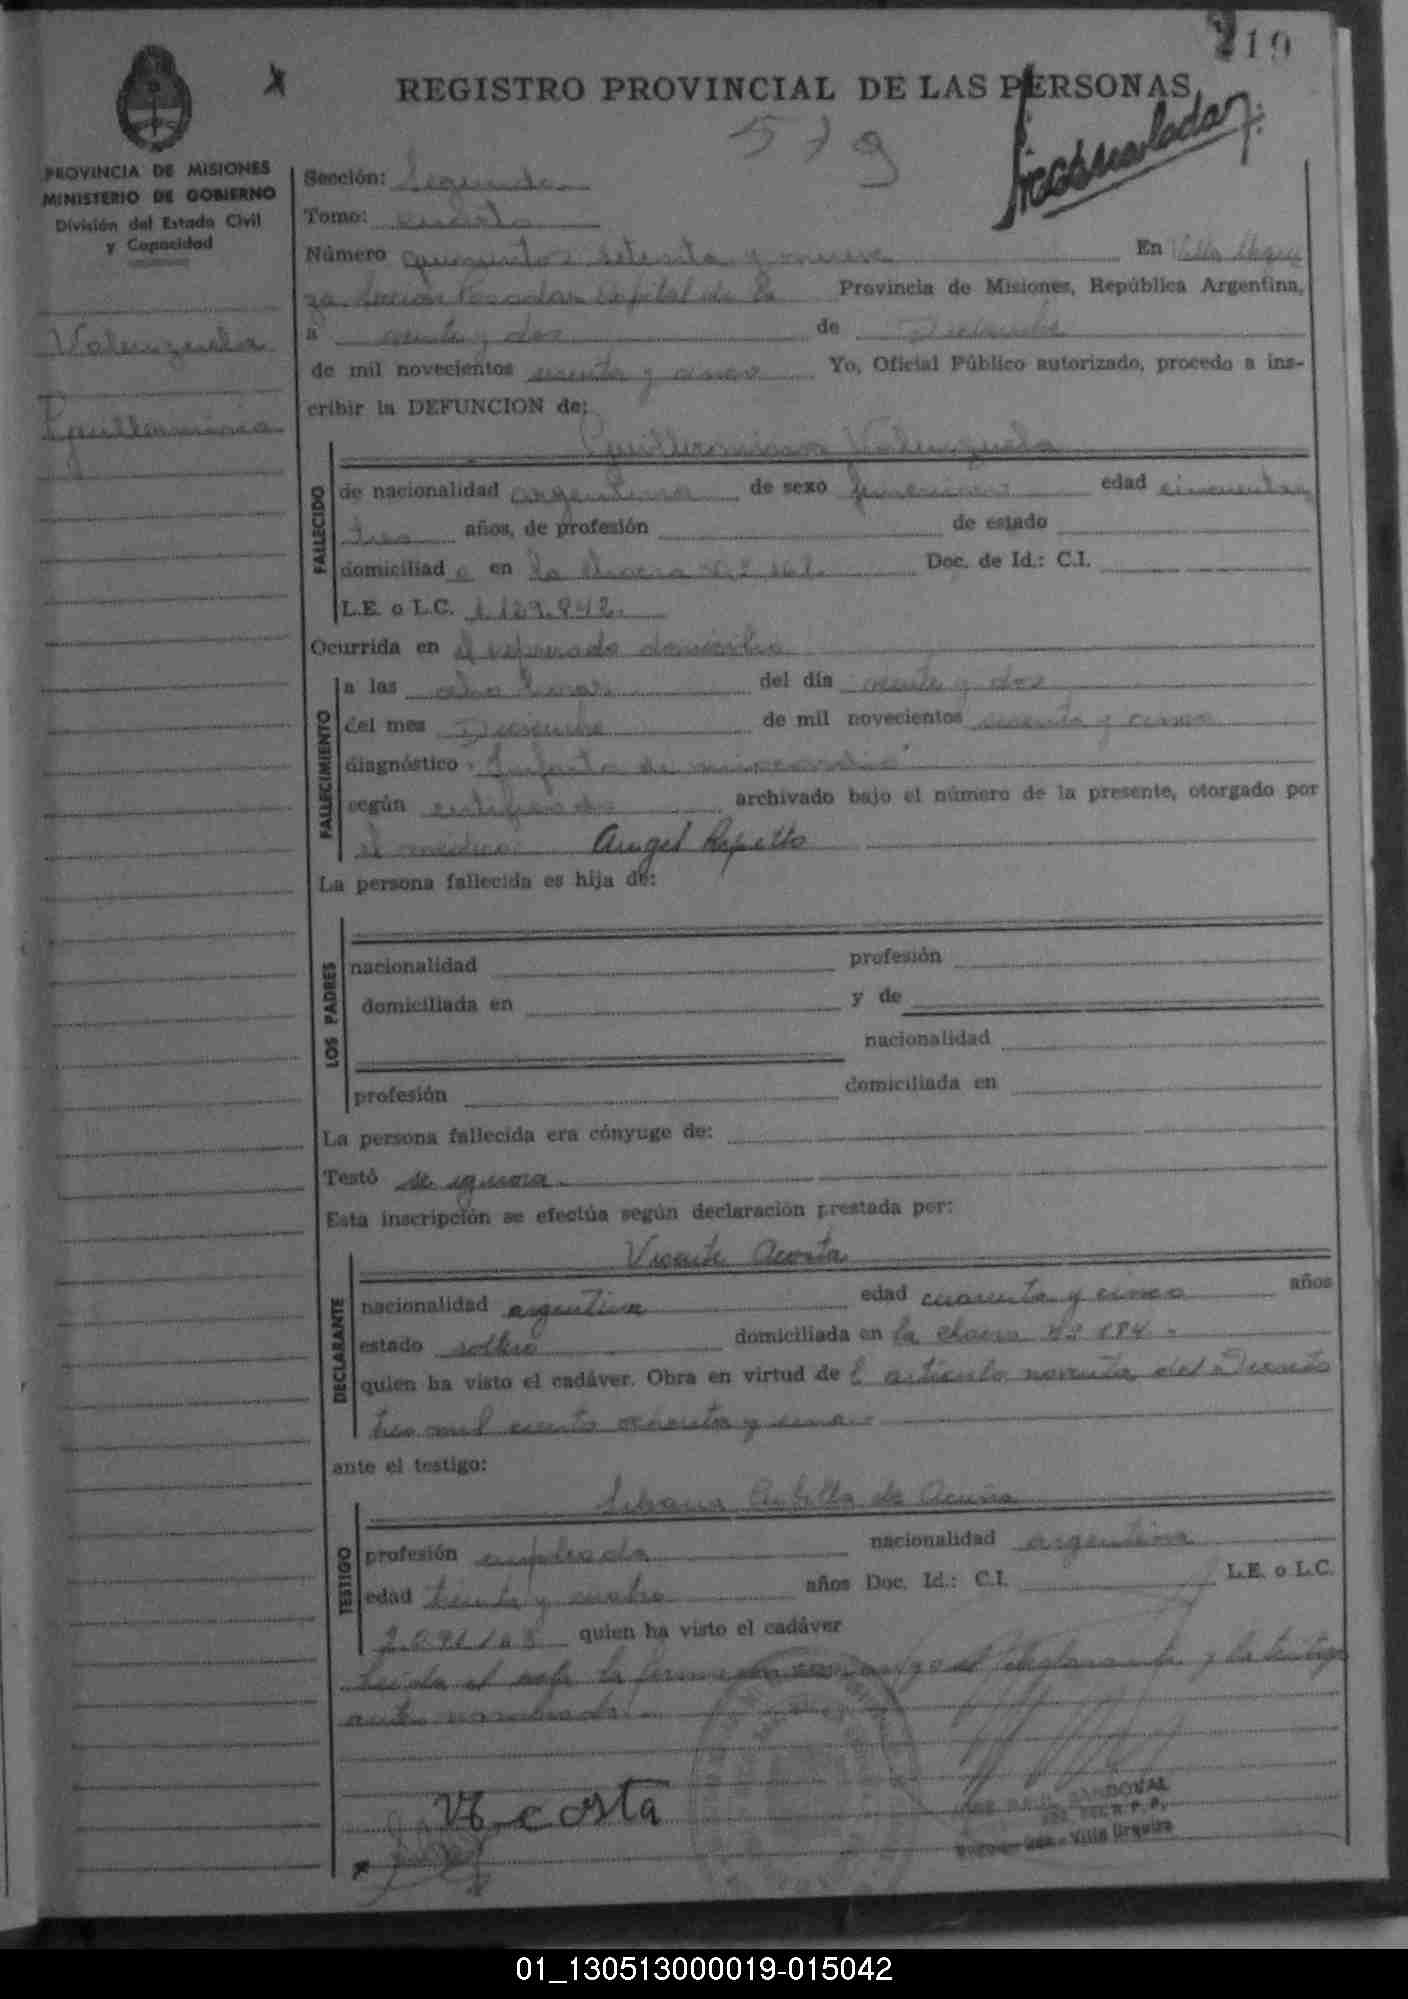 219
REGISTRO PROVINCIAL DE LAS PERSONAS
579
PROVINCIA DE MISIONES
MINISTERIO DE GOBIERNO
División del Estado Civil
y Capacidad
Valenzuela
Guillermina
Sección: Segunda
Tomo: cuarto
Número quinientos setenta y nueve En Villa Urqui
za Sección Posadas Capital de la Provincia de Misiones, República Argentina,
a veinte y dos de Diciembre
de mil novecientos sesenta y cinco Yo, Oficial Público autorizado, procedo a ins-
cribir la DEFUNCION de:
Guillermina Valenzuela
FALLECIDO
de nacionalidad argentina de sexo femenino edad cincuenta
tres años, de profesión de estado
domiciliada en la chacra Nº 161. Doc. de Id.: C.I.
L.E. o L.C. 1.129.842.
Ocurrida en el expresado domicilio
FALLECIMIENTO
a las ocho horas del día veinte y dos
del mes Diciembre de mil novecientos sesenta y cinco
diagnóstico "Infarto de miocardio"
según certificado archivado bajo el número de la presente, otorgado por
el médico Angel Repetto
La persona fallecida es hija de:
LOS PADRES
nacionalidad profesión
domiciliada en y de
nacionalidad
profesión domiciliada en
La persona fallecida era cónyuge de:
Testó se ignora
Esta inscripción se efectúa según declaración prestada por:
Vicente Acosta
DECLARANTE
nacionalidad argentina edad cuarenta y cinco años
estado soltero domiciliada en la chacra Nº 184.
quien ha visto el cadáver. Obra en virtud del artículo noventa del Decreto
tres mil ciento ochenta y uno
ante el testigo:
de Acuña
TESTIGO
profesión empleada nacionalidad argentina
edad treinta y cuatro años Doc. Id.: C.I. L.E. o L.C.
quien ha visto el cadáver
Leída el acta la firman conmigo el declarante y la testigo
antes nombrado.
V Acosta
SANDOVAL
Villa Urquiza
01_130513000019-015042